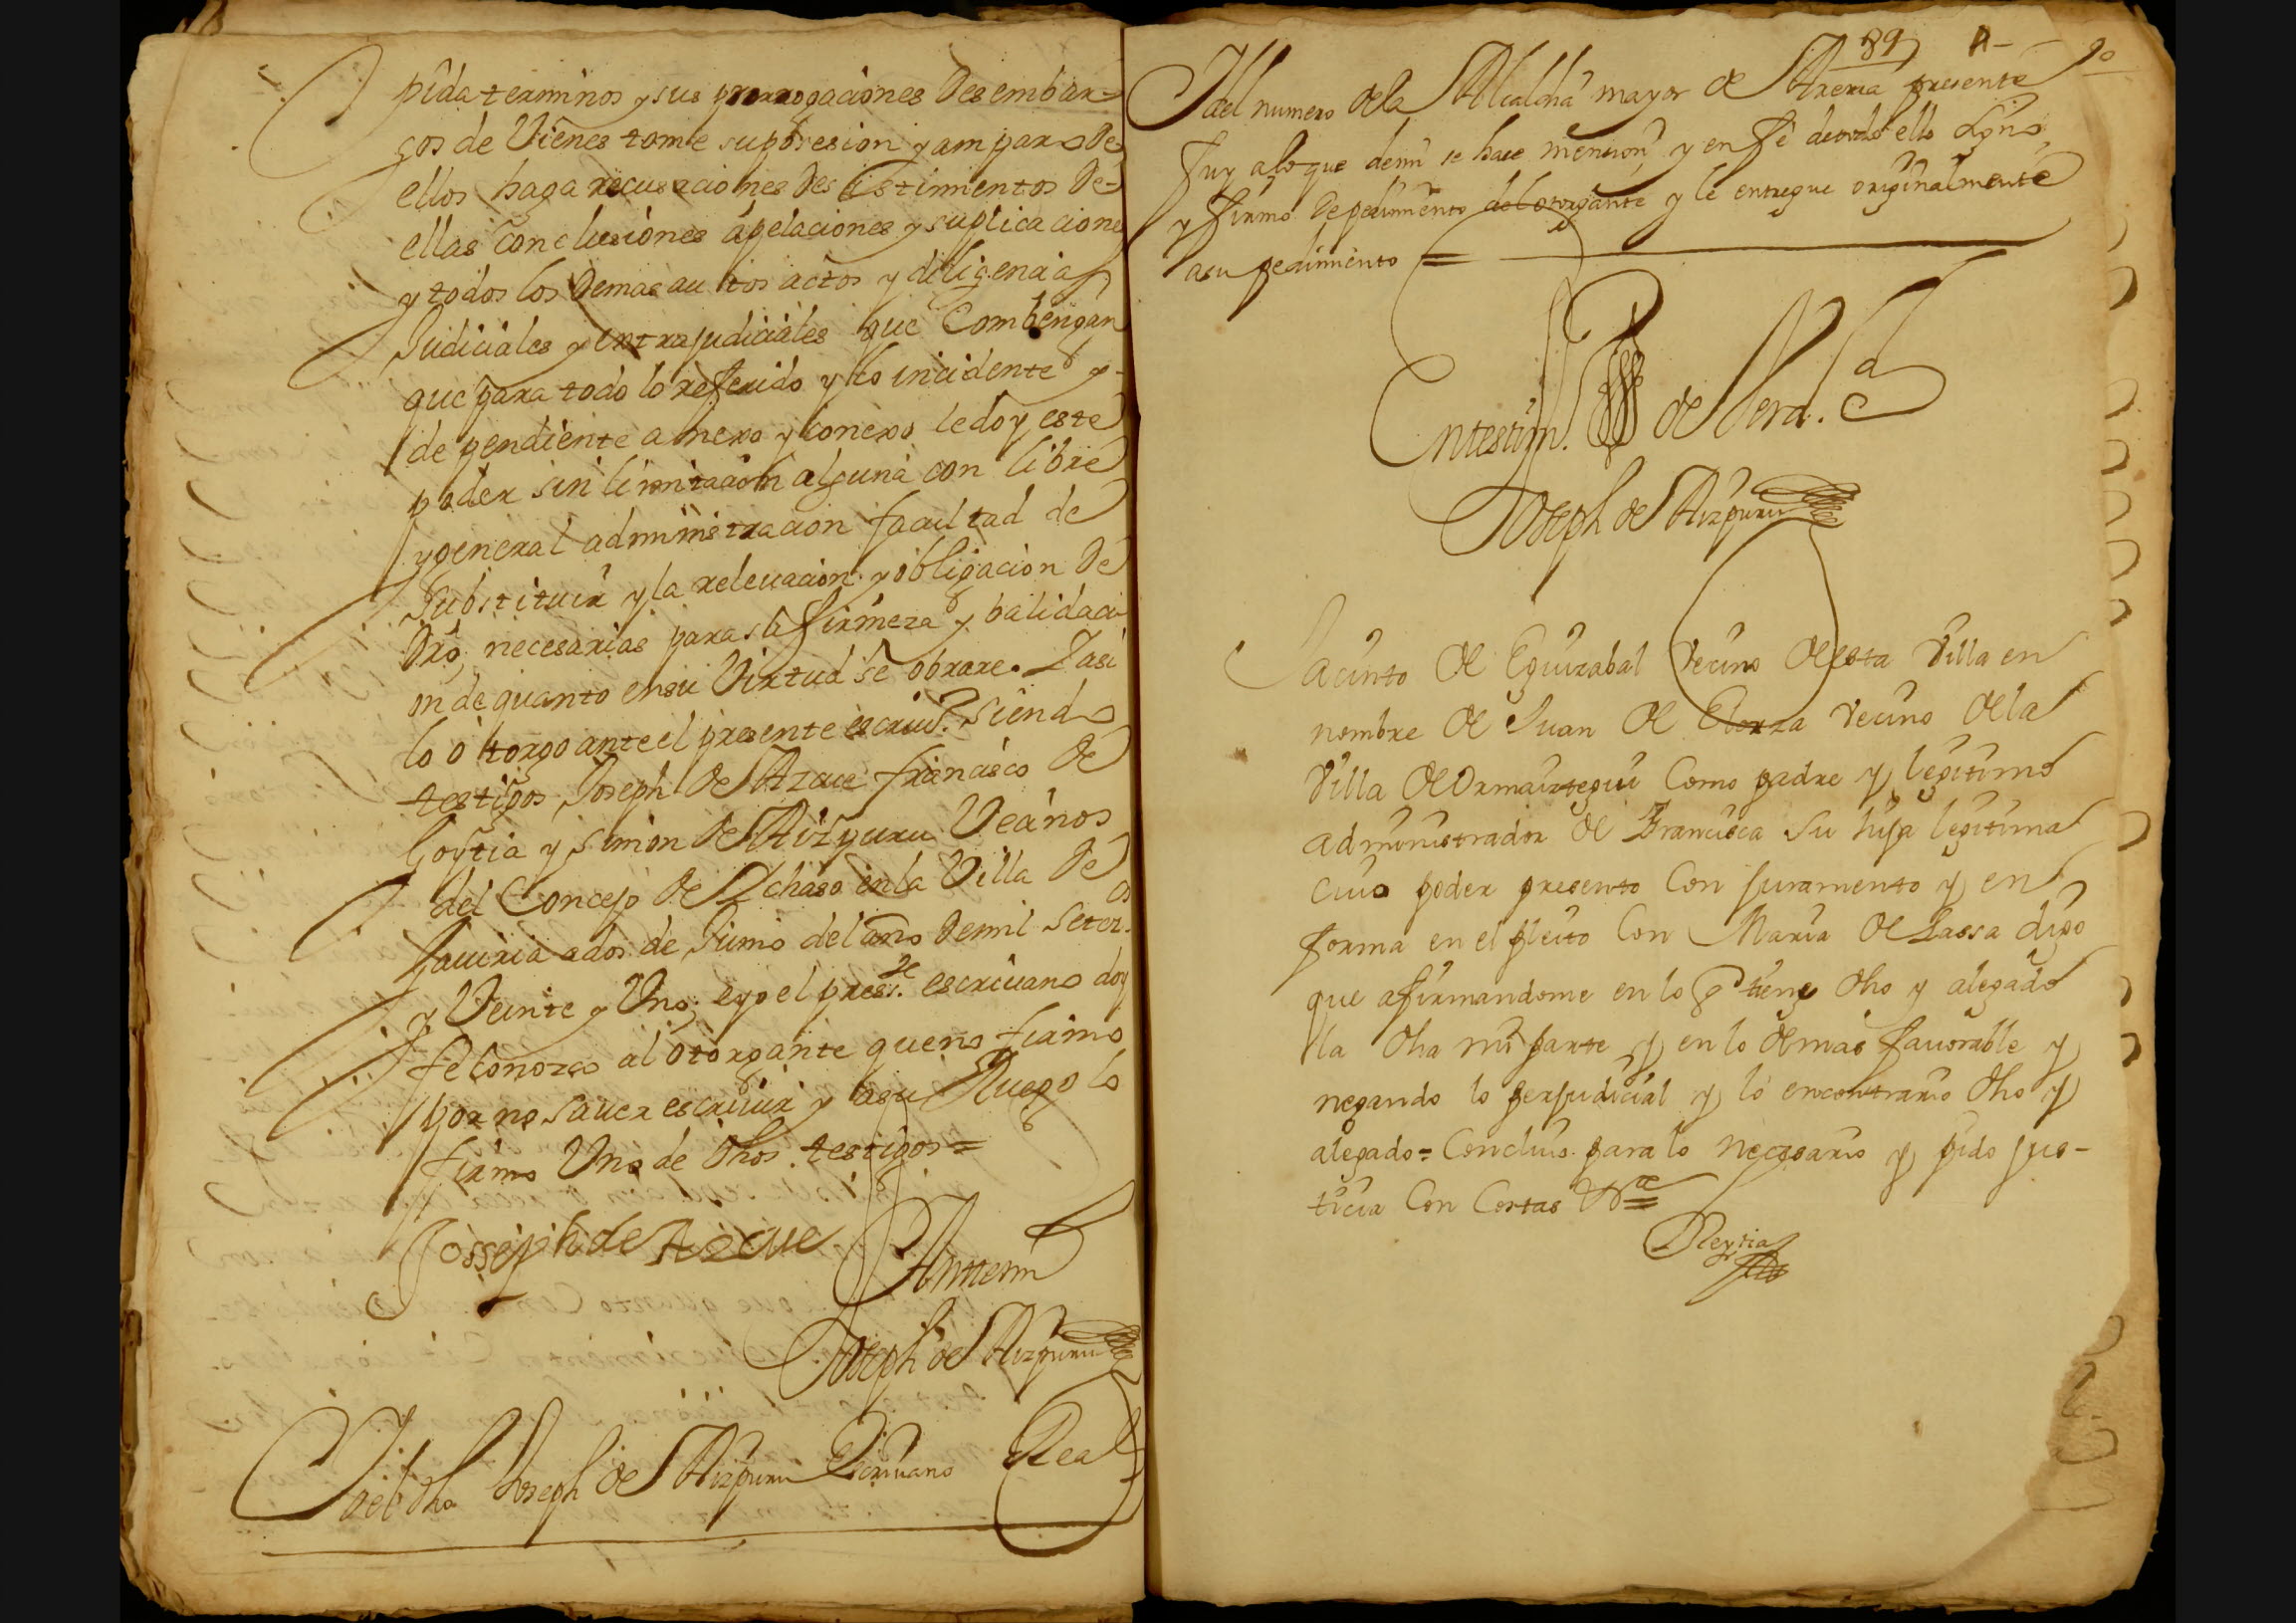 pida terminos y sus prorrogaciones Desembar-
gos de Vienes tome su posesion y amparo De
ellos haga recusaciones Desistimientos De-
ellas conclusiones apelaciones y suplicacione
y todos los Demas autos actos y diligencias
Judiciales y extrajudiciales que Combengan
que para todo lo referido y lo incidente y-
dependiente anexo y conexo le doy este
poder sin limitacion alguna con libre
y general administracion facultad de
Substituir y la relevacion y obligacion De
Dro necesarias para su firmeza y balidaci
on de quanto en su Virtud se obrare. Y asi
lo otorgo ante el presente escriuo. Siendo
testigos Joseph de Azcue francisco de
Goytia y Simon de Aizpuru Vecinos
del Concejo de Ychaso en la Villa De
Gaviria a dos de Junio del año De mil Setezos.
y Veinte y Uno, e yo el press.te escriuano doy
fe Conozco al otorgante que no firmo
por no saver escriuir y a su Ruego lo
firmo Uno de dhos testigos=
Josseph de Azcue
Ante mi
Joseph de Aizpuru
Yo el dho Joseph de Aizpuru Escriuano Real
89
90
y del numero de la Alcaldia mayor de Areria presente
fuy a lo que de mi se hace mencion y en fe de todo ello signo
y firmo de pedimento del otorgante y le entregue originalmente
a su pedimiento =
En testim. de Verd.
Joseph de Aizpuru
Jacinto de Eguizabal Vecino de esta Villa en
nombre de Juan de Elorza Vecino de la
Villa de Ormaiztegui Como padre y legitimo
administrador de Francisca su hija legitima
cuio poder presento Con juramento y en
forma en el pleito Con Maria de Lassa digo
que afirmandome en lo q tiene dho y alegado
la dha mi parte y en lo demas favorable y
negando lo perjudicial y lo encontrario dho y
alegado= Concluio para lo necesario y pido jus-
ticia Con Costas &